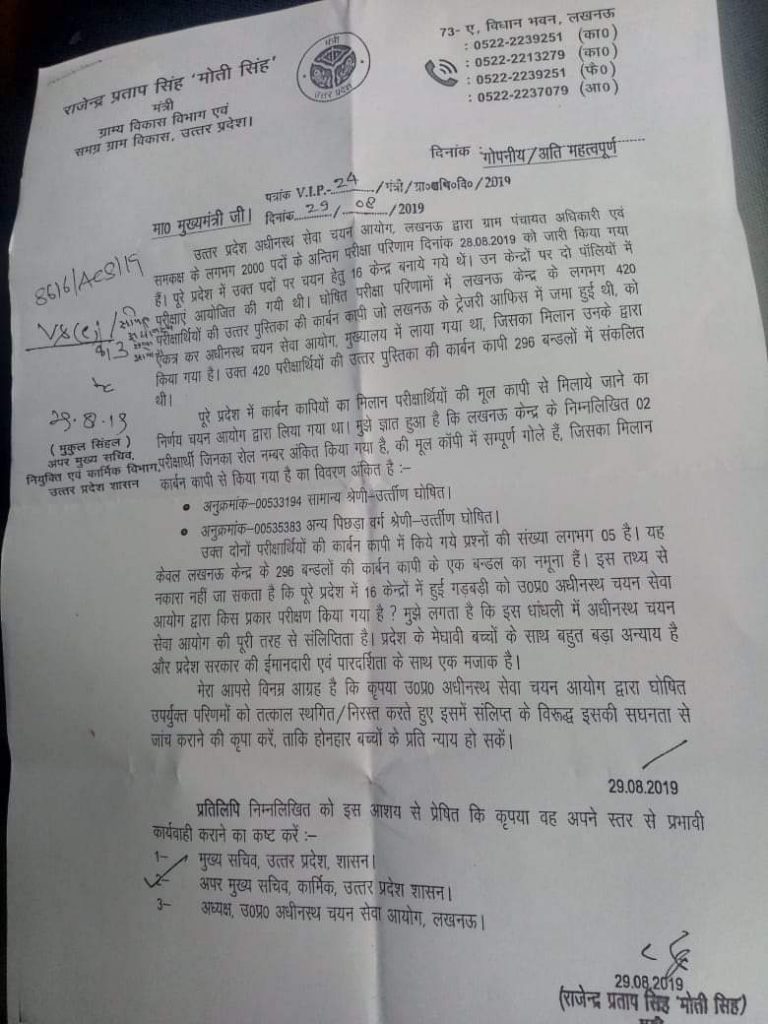 राजेन्द्र प्रताप सिंह 'मोती सिंह'
मंत्री
ग्राम्य विकास विभाग एवं
समग्र ग्राम विकास, उत्तर प्रदेश।
मंत्री
उत्तर प्रदेश
73- ए, विधान भवन, लखनऊ
: 0522-2239251 (का0)
: 0522-2213279 (का0)
: 0522-2239251 (फै0)
: 0522-2237079 (आ0)
दिनांक : गोपनीय/अति महत्वपूर्ण
पत्रांक V.I.P.- 24 /मंत्री/ग्रा0वि0/2019
दिनांक 29 / 08 /2019
मा0 मुख्यमंत्री जी।
उत्तर प्रदेश अधीनस्थ सेवा चयन आयोग, लखनऊ द्वारा ग्राम पंचायत अधिकारी एवं
समकक्ष के लगभग 2000 पदों के अन्तिम परीक्षा परिणाम दिनांक 28.08.2019 को जारी किया गया
हैं। पूरे प्रदेश में उक्त पदों पर चयन हेतु 16 केन्द्र बनाये गये थें। उन केन्द्रों पर दो पॉलियों में
परीक्षाएं आयोजित की गयी थी। घोषित परीक्षा परिणामों में लखनऊ केन्द्र के लगभग 420
परीक्षार्थियों की उत्तर पुस्तिका की कार्बन कापी जो लखनऊ के ट्रेजरी आफिस में जमा हुई थी, को
एकत्र कर अधीनस्थ सेवा चयन आयोग, मुख्यालय में लाया गया था, जिसका मिलान उनके द्वारा
किया गया है। उक्त 420 परीक्षार्थियों की उत्तर पुस्तिका की कार्बन कापी 296 बन्डलों में संकलित
थी।
8616/ACS/19
29.8.19
( मुकुल सिंहल )
अपर मुख्य सचिव,
नियुक्ति एवं कार्मिक विभाग,
उत्तर प्रदेश शासन
पूरे प्रदेश में कार्बन कापियों का मिलान परीक्षार्थियों की मूल कापी से मिलाये जाने का
निर्णय चयन आयोग द्वारा लिया गया था। मुझे ज्ञात हुआ है कि लखनऊ केन्द्र के निम्नलिखित 02
परीक्षार्थी जिनका रोल नम्बर अंकित किया गया है, की मूल कॉपी में सम्पूर्ण गोले हैं, जिसका मिलान
कार्बन कापी से किया गया है का विवरण अंकित है :–
• अनुक्रमांक-00533194 सामान्य श्रेणी-उर्त्तीण घोषित।
• अनुक्रमांक-00535383 अन्य पिछड़ा वर्ग श्रेणी-उर्त्तीण घोषित।
उक्त दोनों परीक्षार्थियों की कार्बन कापी में किये गये प्रश्नों की संख्या लगभग 05 है। यह
केवल लखनऊ केन्द्र के 296 बन्डलों की कार्बन कापी के एक बन्डल का नमूना हैं। इस तथ्य से
नकारा नहीं जा सकता है कि पूरे प्रदेश में 16 केन्द्रों में हुई गड़बड़ी को उ0प्र0 अधीनस्थ चयन सेवा
आयोग द्वारा किस प्रकार परीक्षण किया गया है ? मुझे लगता है कि इस धांधली में अधीनस्थ चयन
सेवा आयोग की पूरी तरह से संलिप्तिता है। प्रदेश के मेघावी बच्चों के साथ बहुत बड़ा अन्याय है
और प्रदेश सरकार की ईमानदारी एवं पारदर्शिता के साथ एक मजाक है।
मेरा आपसे विनम्र आग्रह है कि कृपया उ0प्र0 अधीनस्थ सेवा चयन आयोग द्वारा घोषित
उपर्युक्त परिणमों को तत्काल स्थगित/निरस्त करते हुए इसमें संलिप्त के विरूद्ध इसकी सघनता से
जांच कराने की कृपा करें, ताकि होनहार बच्चों के प्रति न्याय हो सकें।
29.08.2019
प्रतिलिपि निम्नलिखित को इस आशय से प्रेषित कि कृपया वह अपने स्तर से प्रभावी
कार्यवाही कराने का कष्ट करें :–
1– मुख्य सचिव, उत्तर प्रदेश, शासन।
2– अपर मुख्य सचिव, कार्मिक, उत्तर प्रदेश शासन।
3– अध्यक्ष, उ0प्र0 अधीनस्थ चयन सेवा आयोग, लखनऊ।
29.08.2019
(राजेन्द्र प्रताप सिंह 'मोती सिंह')
मंत्री